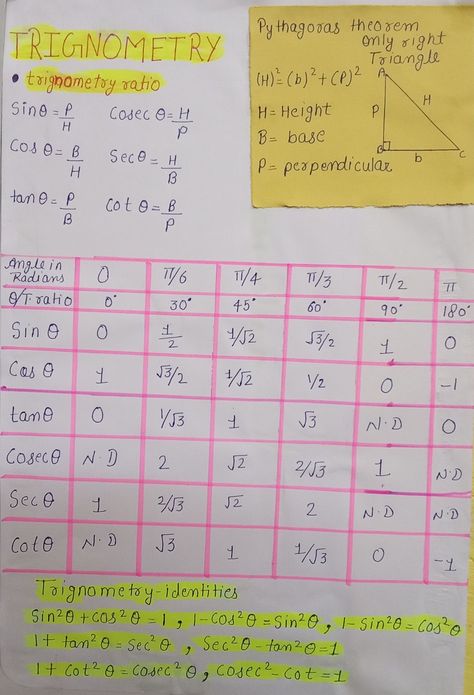 TRIGNOMETRY
• trignometry ratio
Sinθ = P/H   Cosec θ = H/P
Cosθ = B/H   Secθ = H/B
tanθ = P/B   Cot θ = B/P
Pythagoras theorem
only right
Triangle
(H)² = (b)² + (P)²
H = Height
B = base
P = perpendicular
A
P H
B b C
Angle in Radians 0 π/6 π/4 π/3 π/2 π
θ/T.ratio 0° 30° 45° 60° 90° 180°
Sin θ 0 1/2 1/√2 √3/2 1 0
Cos θ 1 √3/2 1/√2 1/2 0 -1
tanθ 0 1/√3 1 √3 N.D 0
Cosecθ N.D 2 √2 2/√3 1 N.D
Secθ 1 2/√3 √2 2 N.D N.D
Cotθ N.D √3 1 1/√3 0 -1
Trignometry-identities
Sin²θ + cos²θ = 1, 1-Cos²θ = Sin²θ, 1-Sin²θ = Cos²θ
1 + tan²θ = Sec²θ, Sec²θ - tan²θ = 1
1 + Cot²θ = Cosec²θ, Cosec² - Cot = 1